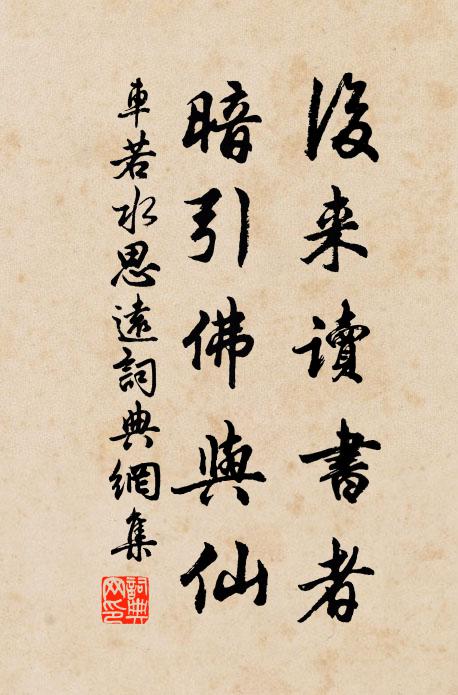 後来讀書者
暗引佛與仙
車若水思遠詞典網集
詞典网印